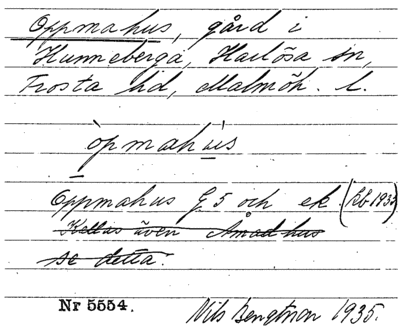 Oppmahus, gård i
Hunneberga, Harlösa sn,
Frosta hd, Malmöh. l.
òpmahu̇s
Oppmahus G 5 och ek. (Kb 1935)
Kallas även Åmadhus
se detta.
Nr 5554. Nils Bengtsson 1935.